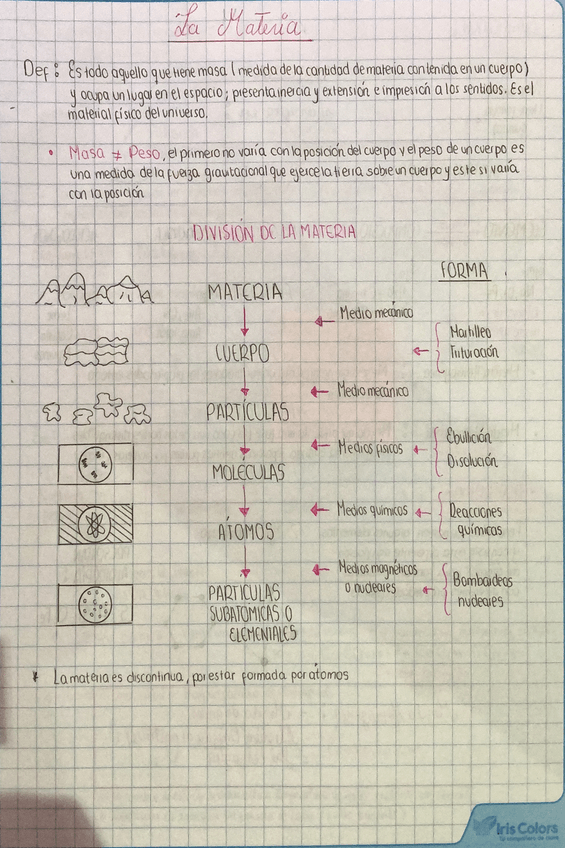 La Materia
Def: Es todo aquello que tiene masa (medida de la cantidad de materia contenida en un cuerpo)
y ocupa un lugar en el espacio; presenta inercia y extensión e impresión a los sentidos. Es el
material físico del universo.
• Masa ≠ Peso, el primero no varía con la posición del cuerpo y el peso de un cuerpo es
una medida de la fuerza gravitacional que ejerce la tierra sobre un cuerpo y este si varía
con la posición
DIVISIÓN DE LA MATERIA
FORMA
MATERIA
Medio mecánico
CUERPO
Martilleo
Trituración
Medio mecánico
PARTÍCULAS
Medios físicos
Ebullición
Disolución
MOLÉCULAS
Medios químicos
Reacciones
químicas
ÁTOMOS
Medios magnéticos
o nucleares
Bombardeos
nucleares
PARTÍCULAS
SUBATÓMICAS O
ELEMENTALES
* La materia es discontinua, por estar formada por átomos
Iris Colors